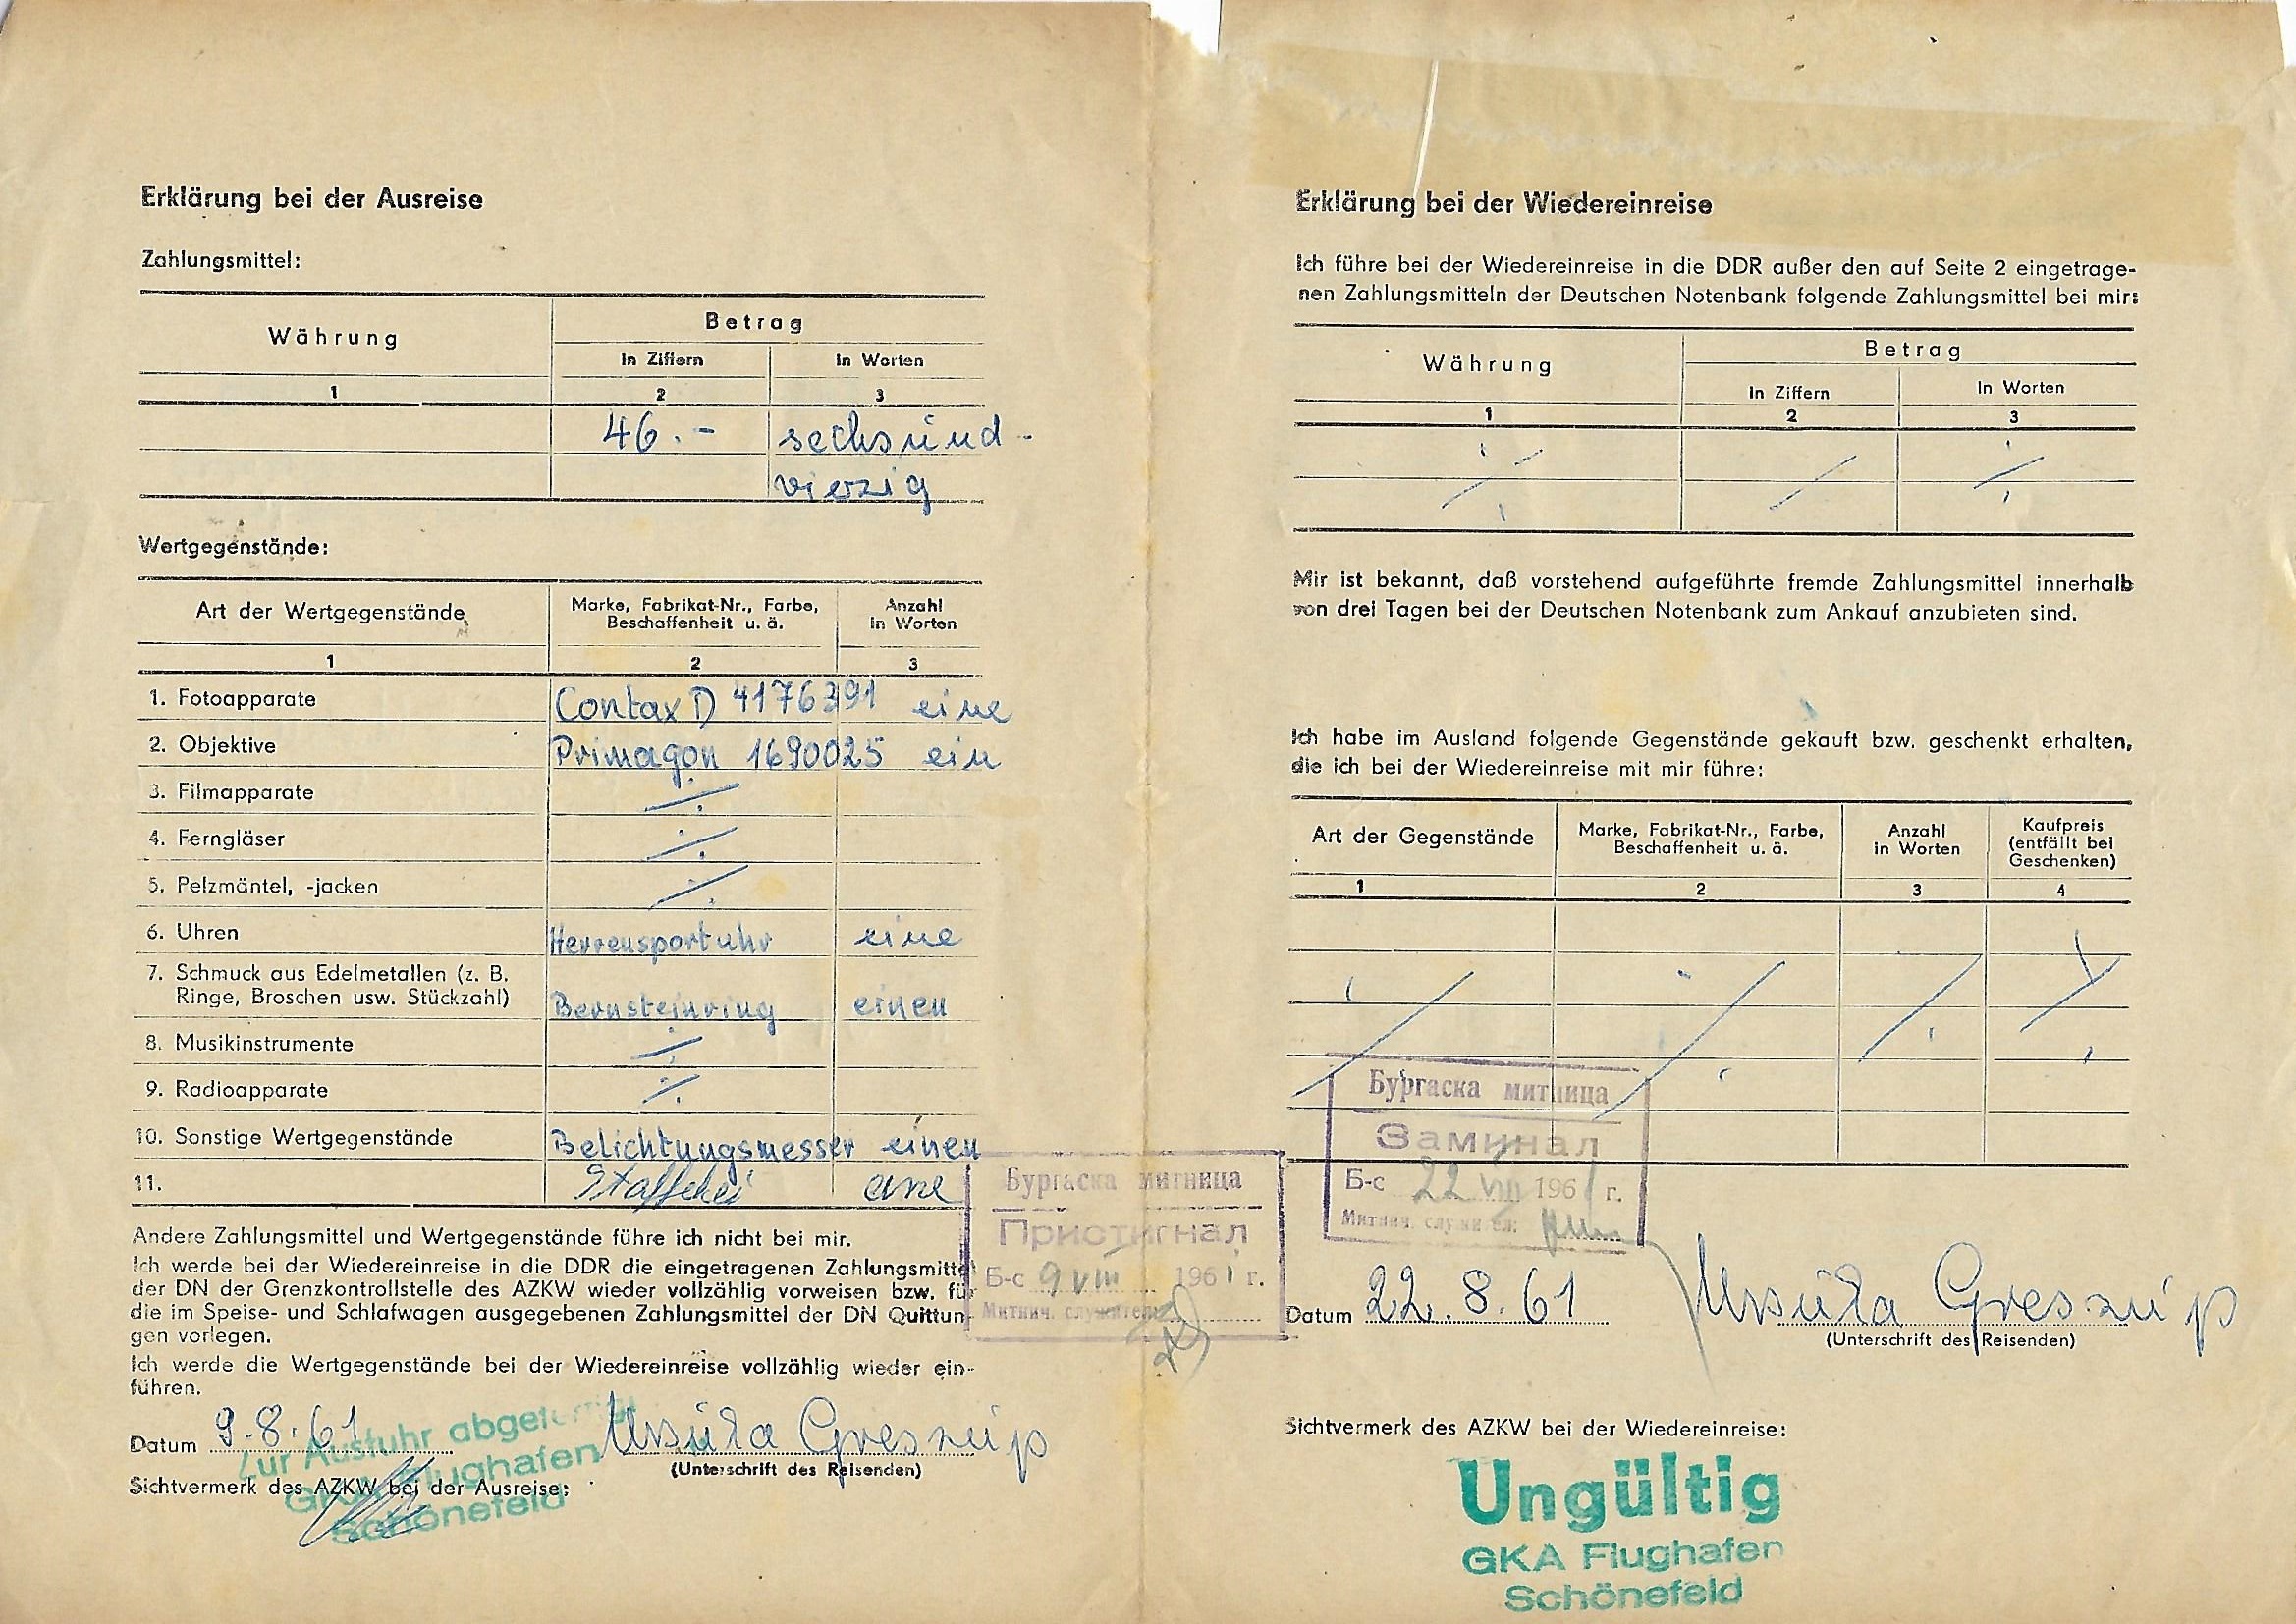 Erklärung bei der Ausreise
Zahlungsmittel:
Währung
Betrag
in Ziffern
in Worten
1
2
3
46.-
sechsund-
vierzig
Wertgegenstände:
Art der Wertgegenstände
Marke, Fabrikat-Nr., Farbe,
Beschaffenheit u. ä.
Anzahl
in Worten
1
2
3
1. Fotoapparate Contax D 4176391 eine
2. Objektive Primagon 1690025 ein
3. Filmapparate ⁒
4. Ferngläser ⁒
5. Pelzmäntel, -jacken ⁒
6. Uhren Herrensportuhr eine
7. Schmuck aus Edelmetallen (z. B.
Ringe, Broschen usw. Stückzahl) Bernsteinring einen
8. Musikinstrumente ⁒
9. Radioapparate ⁒
10. Sonstige Wertgegenstände Belichtungsmesser einen
11. Staffelei eine
Andere Zahlungsmittel und Wertgegenstände führe ich nicht bei mir.
Ich werde bei der Wiedereinreise in die DDR die eingetragenen Zahlungsmittel
der DN der Grenzkontrollstelle des AZKW wieder vollzählig vorweisen bzw. für
die im Speise- und Schlafwagen ausgegebenen Zahlungsmittel der DN Quittun-
gen vorlegen.
Ich werde die Wertgegenstände bei der Wiedereinreise vollzählig wieder ein-
führen.
Datum 9.8.61 Ursula Greszup
(Unterschrift des Reisenden)
Sichtvermerk des AZKW bei der Ausreise:
Zur Ausfuhr abgefertigt
GKA Flughafen
Schönefeld
Бургаска митница
Пристигнал
Б-с 9 VIII 1961 г.
Митнич. служител:
Erklärung bei der Wiedereinreise
Ich führe bei der Wiedereinreise in die DDR außer den auf Seite 2 eingetrage-
nen Zahlungsmitteln der Deutschen Notenbank folgende Zahlungsmittel bei mir:
Währung
Betrag
in Ziffern
in Worten
1
2
3
⁒ ⁒ ⁒
Mir ist bekannt, daß vorstehend aufgeführte fremde Zahlungsmittel innerhalb
von drei Tagen bei der Deutschen Notenbank zum Ankauf anzubieten sind.
Ich habe im Ausland folgende Gegenstände gekauft bzw. geschenkt erhalten,
die ich bei der Wiedereinreise mit mir führe:
Art der Gegenstände
Marke, Fabrikat-Nr., Farbe,
Beschaffenheit u. ä.
Anzahl
in Worten
Kaufpreis
(entfällt bei
Geschenken)
1
2
3
4
⁒ ⁒ ⁒ ⁒
Бургаска митница
Заминал
Б-с 22 VIII 1961 г.
Митнич. служител:
Datum 22.8.61 Ursula Greszup
(Unterschrift des Reisenden)
Sichtvermerk des AZKW bei der Wiedereinreise:
Ungültig
GKA Flughafen
Schönefeld